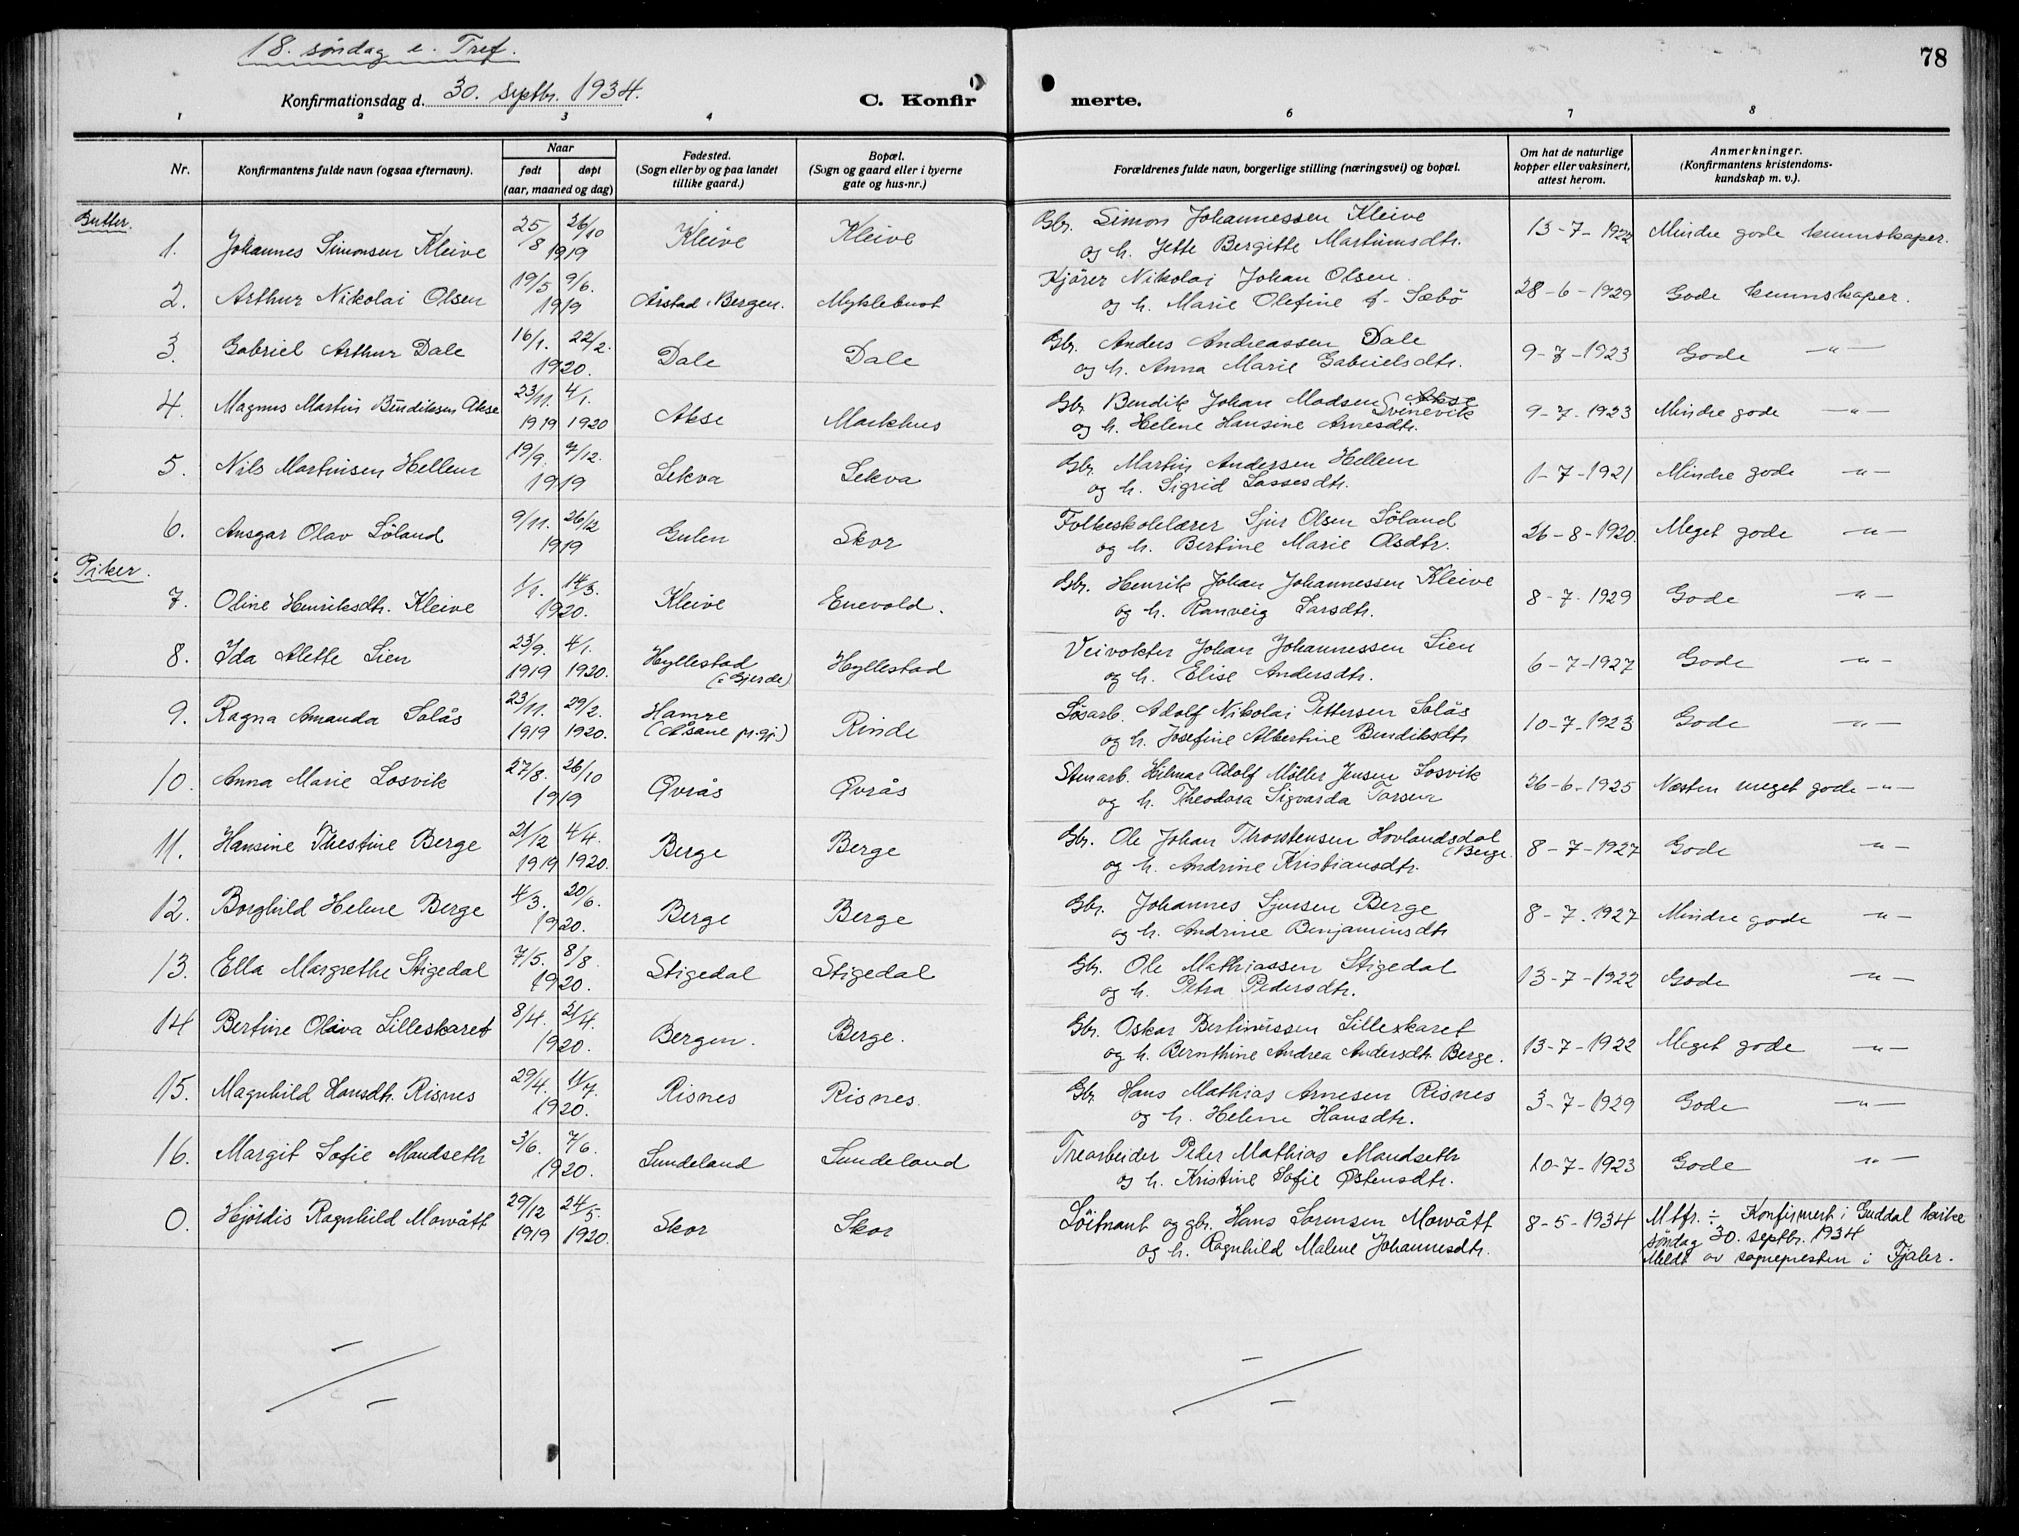 18. søndag e. Tref.
78
Konfirmationsdag d. 30. septbr. 1934.
C. Konfir
merte.
1 2 3 4 5 6 7 8
Nr.
Konfirmantens fulde navn (ogsaa efternavn).
Naar
født døpt
(aar, maaned og dag)
Fødested.
(Sogn eller by og paa landet
tillike gaard.)
Bopæl.
(Sogn og gaard eller i byerne
gate og hus-nr.)
Forældrenes fulde navn, borgerlige stilling (næringsvei) og bopæl.
Om hat de naturlige
kopper eller vaksinert,
attest herom.
Anmerkninger.
(Konfirmantens kristendoms-
kundskap m. v.).
Gutter.
1. Johannes Simonsen Kleive 25/8 26/10 1919 Kleive Kleive Gbr. Simon Johannessen Kleive 13-7-1922 Mindre gode kunnskaper.
og h. Jette Bergitte Martinusdtr.
2. Arthur Nikolai Olsen 19/5 9/6. 1919 Årstad i Bergen. Myklebust Kjører Nikolai Johan Olsen 28-6-1929 Gode kunnskaper.
og h. Marie Olefine f. Sæbø
3. Gabriel Arthur Dale 16/1. 22/2. 1920. Dale Dale Gbr. Anders Andreassen Dale 9-7-1923 Gode -"-
og h. Anna Marie Gabrielsdtr.
4. Magnus Martin Bendiksen Akse 23/11. 1919 4/1. 1920 Akse Markhus Gbr. Bendik Johan Madsen Akse Svinevik 9-7-1923 Mindre gode -"-
og h. Helene Hansine Arnesdtr.
5. Nils Martinsen Hellem 19/9. 7/12. 1919 Lekva Lekva Gbr. Martin Andersen Hellem 1-7-1921 Mindre gode -"-
og h. Sigrid Lassesdtr.
6. Ansgar Olav Løland 9/11. 26/12 1919 Gulen Skor Folkeskolelærer Sjur Olsen Løland 26-8-1920. Meget gode -"-
og h. Bertine Marie Olsdtr.
Piker.
7. Oline Henriksdtr. Kleive 1/1. 14/3. 1920. Kleive Enevold. Gbr. Henrik Johan Johannessen Kleive 8-7-1929 Gode -"-
og h. Ranveig Larsdtr.
8. Ida Alette Lien 23/9. 1919 4/1. 1920. Hyllestad (: Gjerde) Hyllestad Veivokter Johan Johannessen Lien 6-7-1927 Gode -"-
og h. Elise Andersdtr.
9. Ragna Amanda Solås 23/11. 1919 29/2. 1920. Hamre (Åsane pr.gj.) Rinde Løsarb. Adolf Nikolai Pettersen Solås 10-7-1923 Gode -"-
og h. Josefine Albertine Bendiksdtr
10. Anna Marie Losvik 27/8. 26/10 1919 Øvrås Øvrås Stenarb. Hilmar Adolf Møller Jensen Losvik 26-6-1925 Næsten meget gode -"-
og h. Theodora Sigvarda Larsen
11. Hansine Thestine Berge 21/12 1919 4/4. 1920. Berge Berge Gbr. Ole Johan Thorstensen Hovlandsdal (Berge 8-7-1927 Gode -"-
og h. Andrine Kristiansdtr.
12. Borghild Helene Berge 4/3. 20/6. 1920. Berge Berge Gbr. Johannes Sjursen Berge 8-7-1927 Mindre gode -"-
og h. Andrine Benjaminsdtr
13. Ella Margrethe Stigedal 7/5. 8/8. 1920. Stigedal Stigedal Gbr. Ole Mathiassen Stigedal 13-7-1922 Gode -"-
og h. Petra Pedersdtr.
14 Bertine Oliva Lilleskaret 8/4. 21/4. 1920. Bergen. Berge. Gbr. Oskar Bertinussen Lilleskaret 13-7-1922 Meget gode -"-
og h. Bernthine Andrea Andersdtr. Berge.
15. Magnhild Hansdtr. Risnes 29/4. 11/7. 1920. Risnes Risnes. Gbr. Hans Mathias Arnesen Risnes 3-7-1929 Gode -"-
og h. Helene Hansdtr.
16. Margit Sofie Mandseth 3/6. 7/6. 1920. Sundeland Sundeland Trearbeider Peder Mathias Mandseth 10-7-1923 Gode -"-
og h. Kristine Sofie Østensdtr.
0. Hjördis Ragnhild Mowått 29/12 1919 24/5. 1920. Skor Skor Löitnant og gbr. Hans Sørensen Mowått 8-5-1934 Mtfr. ÷ Konfirmert i Guddal kirke
og h. Ragnhild Malene Johannesdtr. søndag 30. septbr. 1934
Meldt av sogneprester i Fjaler.